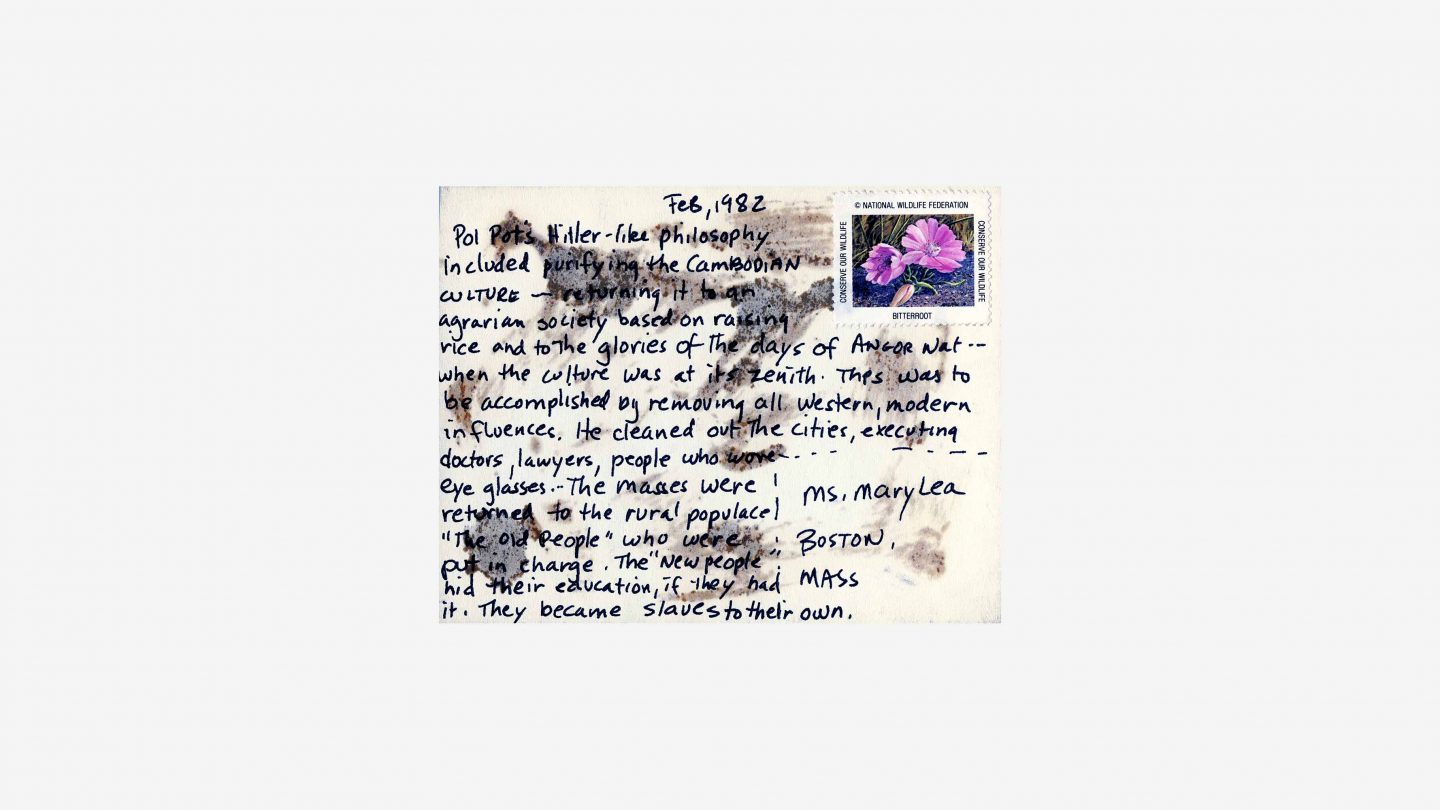 Feb, 1982
Pol Pot's Hitler-like philosophy
included purifying the CAMBODIAN
CULTURE — returning it to an
agrarian society based on raising
rice and to The glories of The days of ANGOR Wat --
when the culture was at its zenith. Thes was to
be accomplished by removing all Western, modern
influences. He cleaned out The cities, executing
doctors, lawyers, people who wore
eye glasses... The masses were
returned to the rural populace
"The Old People" who were
put in charge. The "New people"
hid their education, if they had
it. They became slaves to their own.
Ms. Mary Lea
BOSTON,
MASS
© NATIONAL WILDLIFE FEDERATION
CONSERVE OUR WILDLIFE
CONSERVE OUR WILDLIFE
BITTERROOT